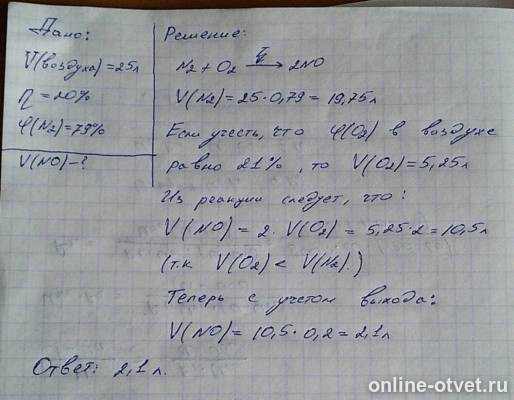 Дано:
V(воздуха)=25л
η = 20%
φ(N2)=79%
V(NO)-?
Решение:
N2 + O2 → 2NO
V(N2)= 25·0,79 = 19,75л
Если учесть, что φ(O2) в воздухе
равно 21%, то V(O2)=5,25л
Из реакции следует, что:
V(NO) = 2·V(O2) = 5,25·2=10,5л
(т.к V(O2) < V(N2).)
Теперь с учетом выхода:
V(NO)= 10,5·0,2= 2,1л
Ответ: 2,1 л.
online-otvet.ru